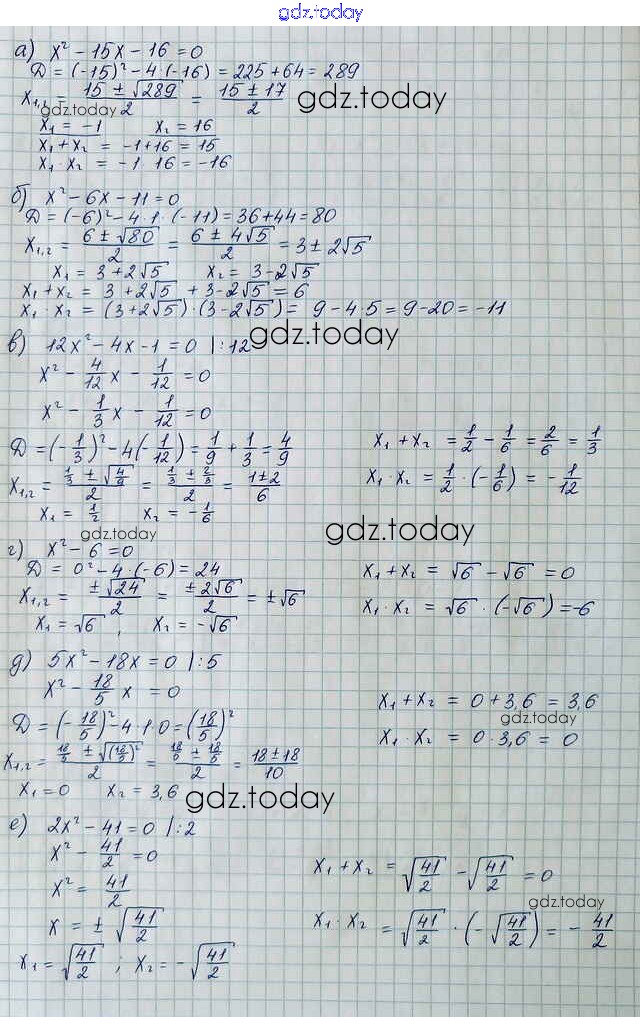 gdz.today
а) x² - 15x - 16 = 0
D = (-15)² - 4·(-16) = 225 + 64 = 289
x₁,₂ = (15 ± √289)/2 = (15 ± 17)/2
gdz.today
gdz.today
x₁ = -1 x₂ = 16
x₁ + x₂ = -1 + 16 = 15
x₁ · x₂ = -1 · 16 = -16
б) x² - 6x - 11 = 0
D = (-6)² - 4·1·(-11) = 36 + 44 = 80
x₁,₂ = (6 ± √80)/2 = (6 ± 4√5)/2 = 3 ± 2√5
x₁ = 3 + 2√5 x₂ = 3 - 2√5
x₁ + x₂ = 3 + 2√5 + 3 - 2√5 = 6
x₁ · x₂ = (3 + 2√5)·(3 - 2√5) = 9 - 4·5 = 9 - 20 = -11
в) 12x² - 4x - 1 = 0 |:12
gdz.today
x² - 4/12 x - 1/12 = 0
x² - 1/3 x - 1/12 = 0
D = (-1/3)² - 4(-1/12) = 1/9 + 1/3 = 4/9
x₁,₂ = (1/3 ± √(4/9))/2 = (1/3 ± 2/3)/2 = (1 ± 2)/6
x₁ = 1/2 x₂ = -1/6
x₁ + x₂ = 1/2 - 1/6 = 2/6 = 1/3
x₁ · x₂ = 1/2 · (-1/6) = -1/12
gdz.today
gdz.today
г) x² - 6 = 0
D = 0² - 4·(-6) = 24
x₁,₂ = ±√24/2 = ±2√6/2 = ±√6
x₁ = √6, x₂ = -√6
x₁ + x₂ = √6 - √6 = 0
x₁ · x₂ = √6 · (-√6) = -6
д) 5x² - 18x = 0 |:5
x² - 18/5 x = 0
D = (-18/5)² - 4·1·0 = (18/5)²
x₁,₂ = (18/5 ± √(18/5)²)/2 = (18/5 ± 18/5)/2 = (18 ± 18)/10
x₁ = 0 x₂ = 3,6
x₁ + x₂ = 0 + 3,6 = 3,6
gdz.today
x₁ · x₂ = 0 · 3,6 = 0
gdz.today
е) 2x² - 41 = 0 |:2
x² - 41/2 = 0
x² = 41/2
x = ± √(41/2)
x₁ = √(41/2) ; x₂ = -√(41/2)
x₁ + x₂ = √(41/2) - √(41/2) = 0
gdz.today
x₁ · x₂ = √(41/2) · (-√(41/2)) = -41/2